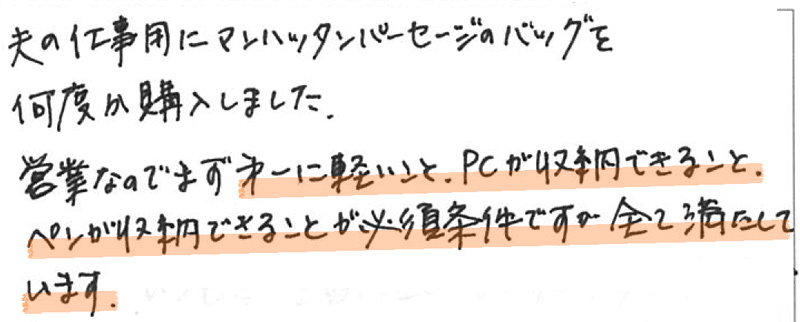 夫の仕事用にマンハッタンパーセージのバッグを
何度か購入しました.
営業なのでまず才一に軽いこと.PCが収納できること.
ペンが収納できることが必須条件ですが全て満たして
います.